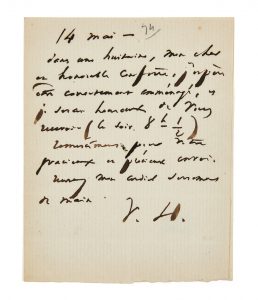 14 mai —
94
dans une huitaine, mon cher
et honorable confrère, j'espère
être convenablement emménagé, et
je serai heureux de vous
recevoir (le soir. 8 h ½)
remerciement pour votre
gracieux et précieux envoi.
mon cordial serrement
de main.
V. H.